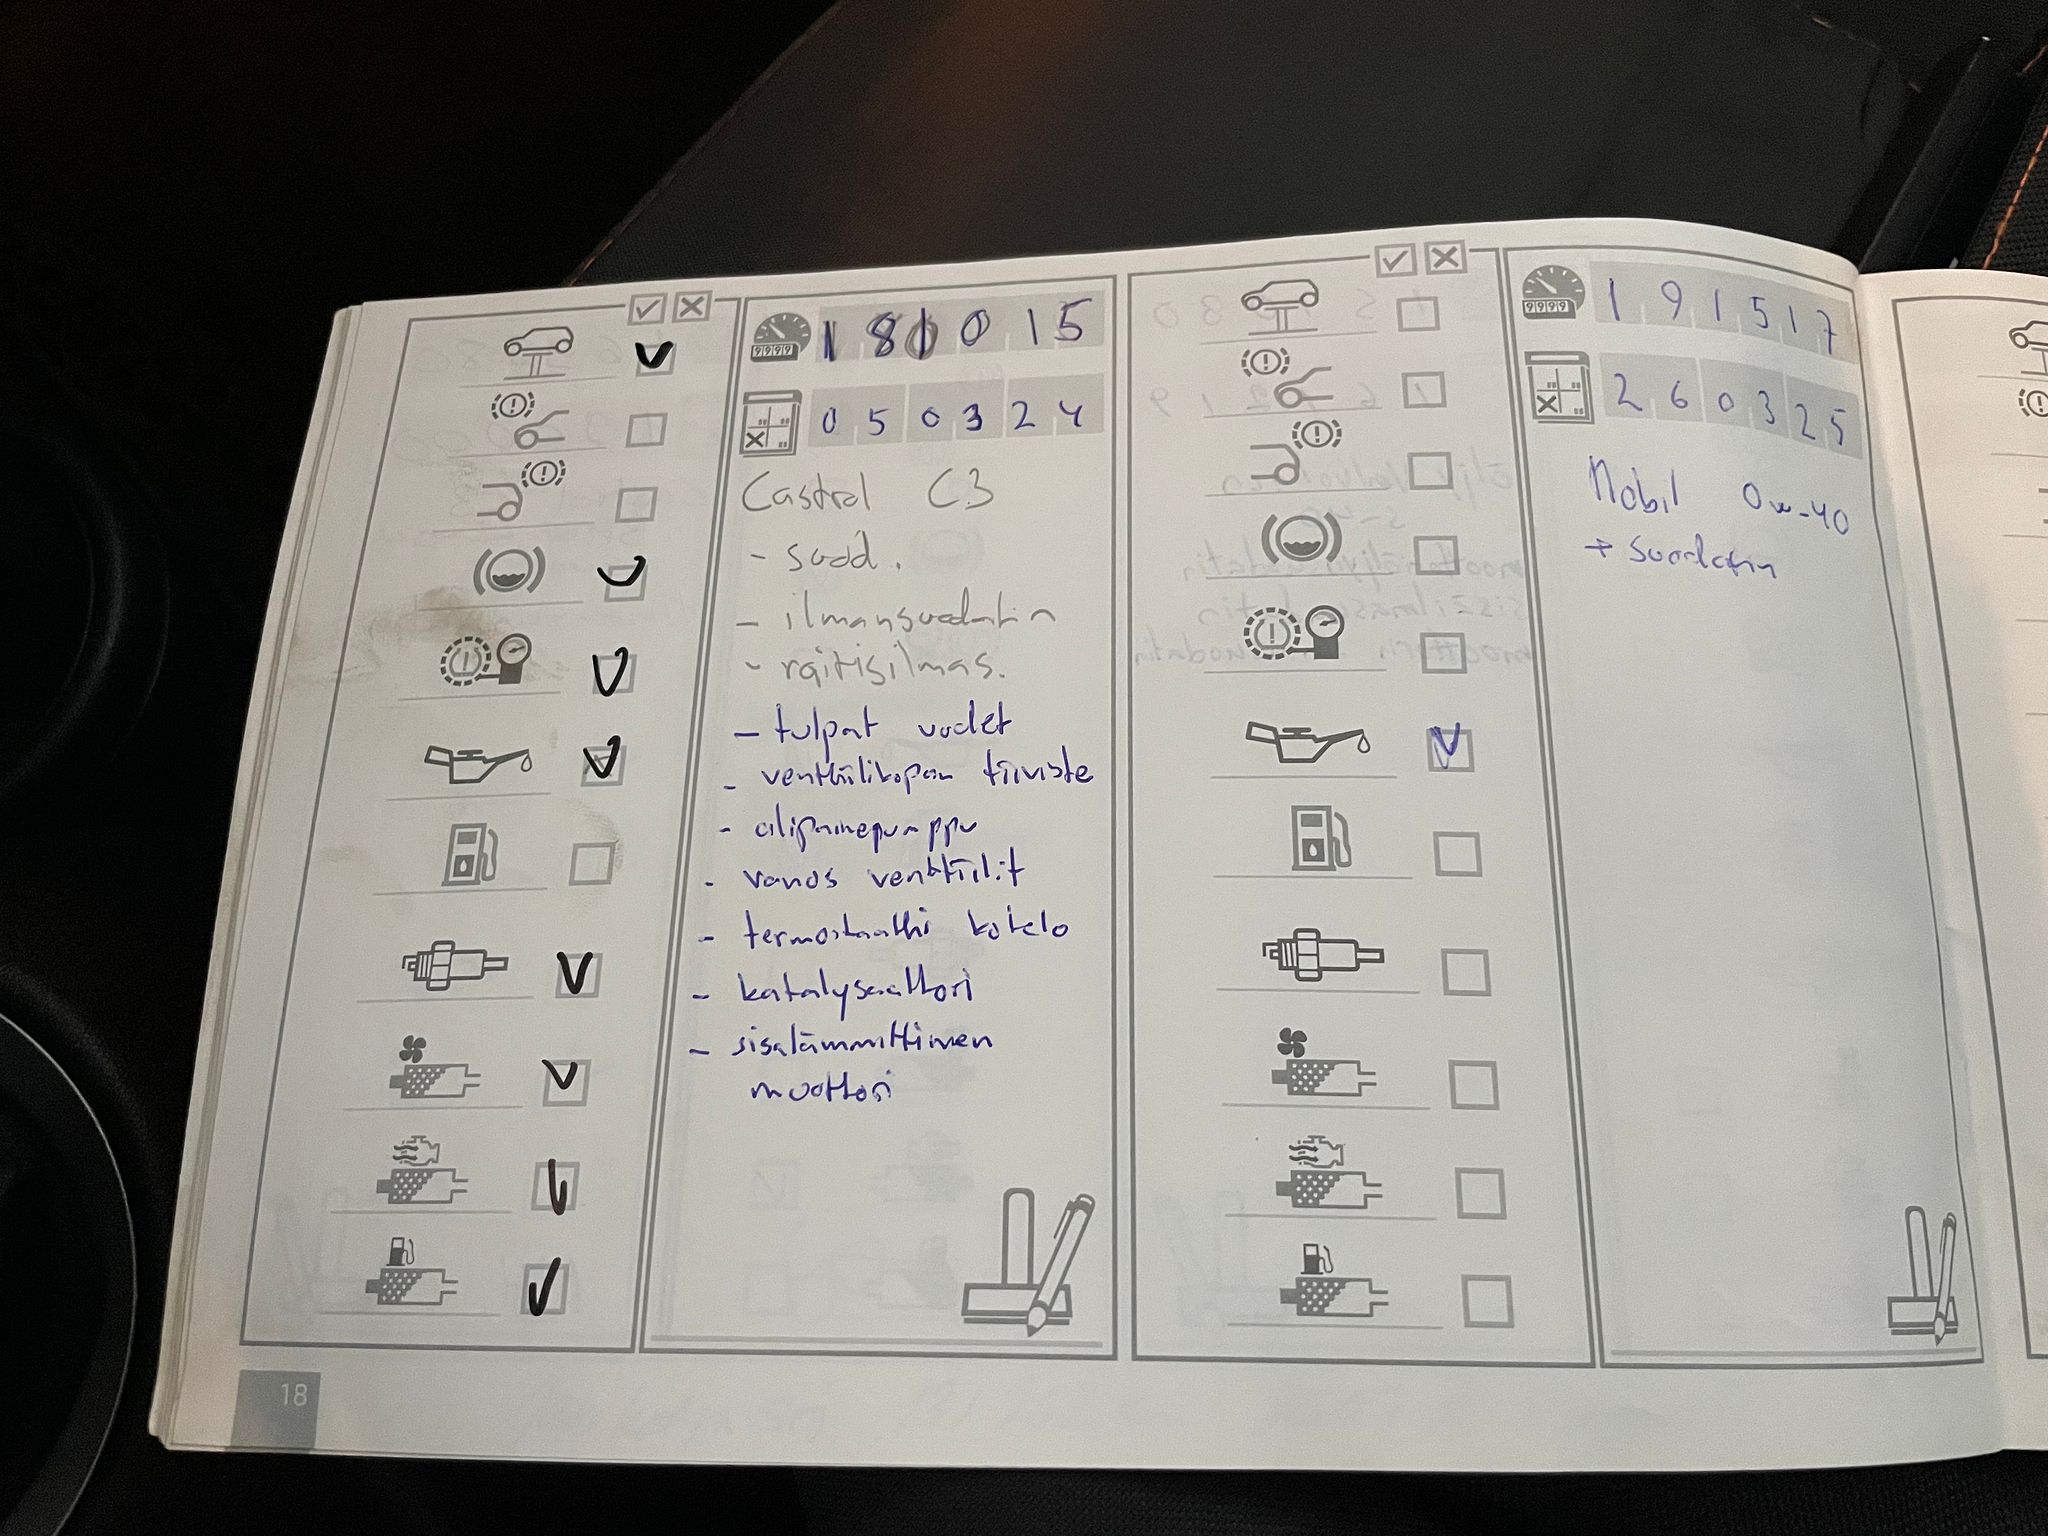 181015
050324
Castrol C3
- suod.
- ilmansuodatin
- raitisilmas.
- tulpat uudet
- venttiilikopan tiiviste
- alipainepumppu
- vanos venttiilit
- termostaatti kotelo
- katalysaattori
- sisälämmittimen
moottori
191517
260325
Mobil 0w-40
+ suodatin
18